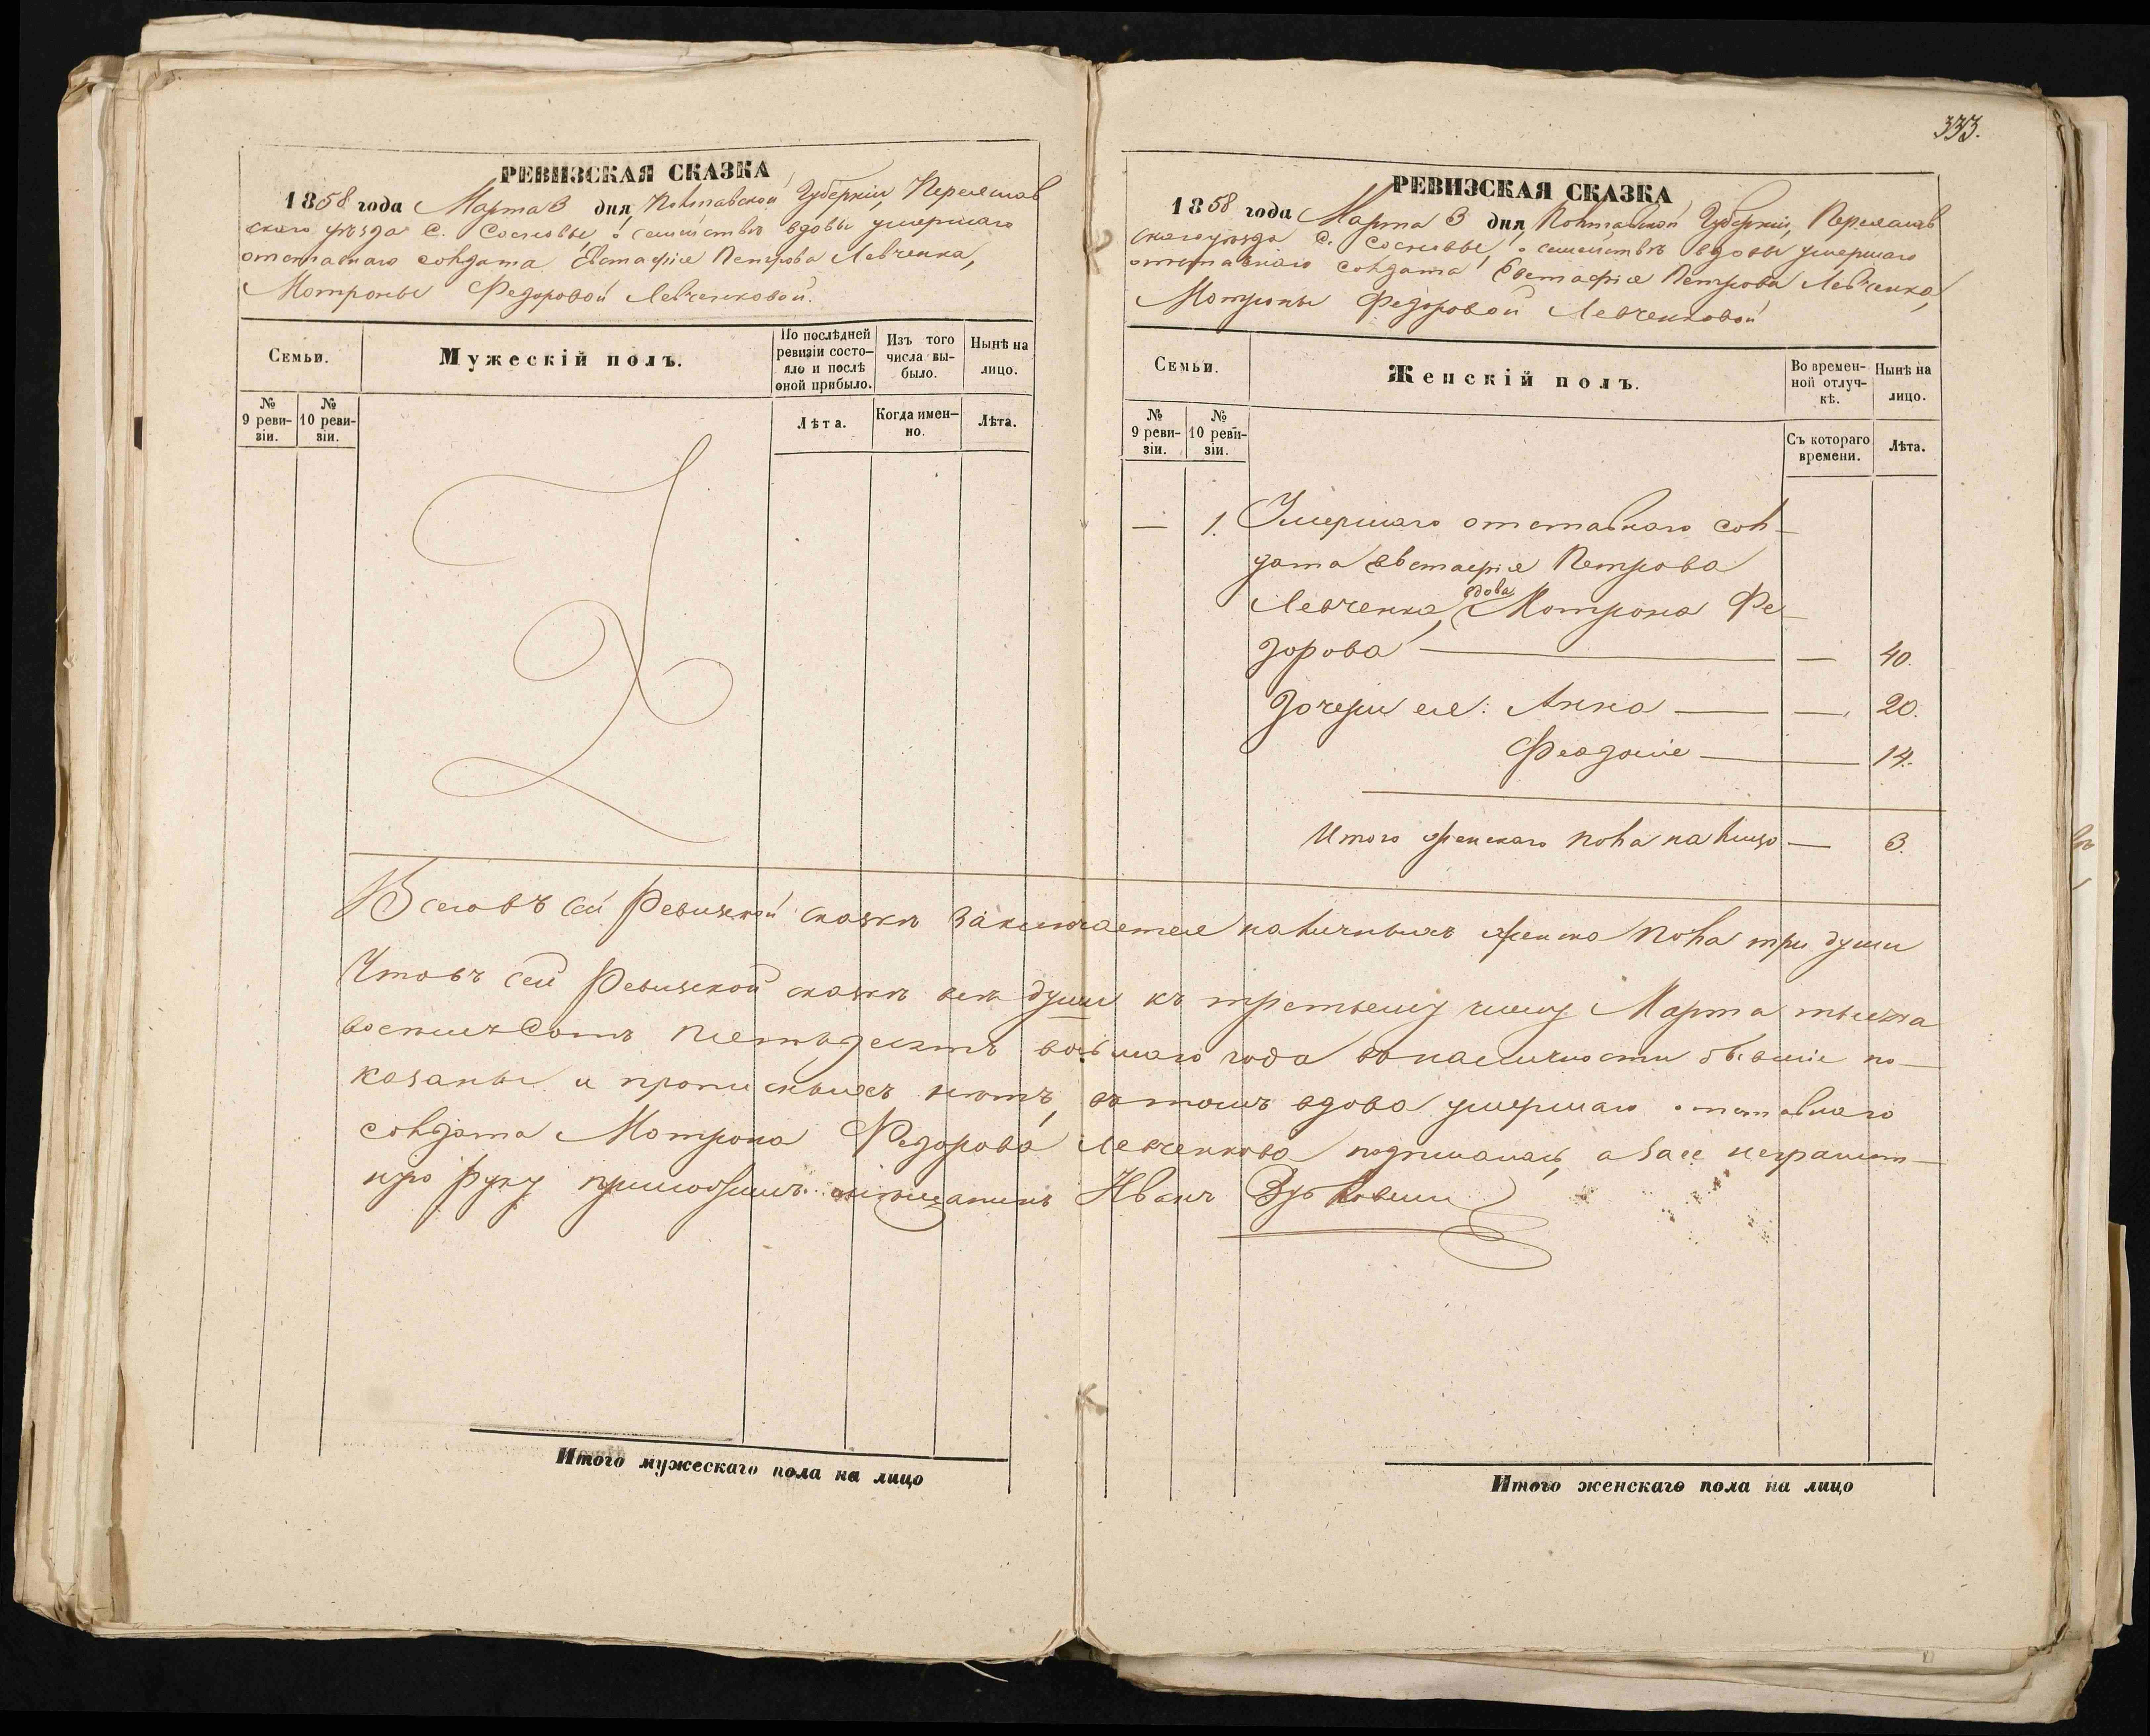 333.
РЕВИЗСКАЯ СКАЗКА
1858 года Марта 3 дня, Полтавской Губерніи, Переяслав
скаго уѣзда С. Сосновы, о семействѣ вдовы умершаго
отставнаго солдата Евстафія Петрова Левченка,
Мотроны Федоровой Левченковой.
Семьи.
Мужескій полъ.
По послѣдней
ревизіи состо-
яло и послѣ
оной прибыло.
Изъ того
числа вы-
было.
Нынѣ на
лицо.
№
9 реви-
зіи.
№
10 реви-
зіи.
Лѣта.
Когда имен-
но.
Лѣта.
РЕВИЗСКАЯ СКАЗКА
1858 года Марта 3 дня, Полтавской Губерніи, Переяслав
скаго уѣзда С. Сосновы, о семействѣ вдовы умершаго
отставнаго солдата Евстафія Петрова Левченка,
Мотроны Федоровой Левченковой
Семьи.
Женскій полъ.
Во времен-
ной отлуч-
кѣ.
Нынѣ на
лицо.
№
9 реви-
зіи.
№
10 реви-
зіи.
Съ котораго
времени.
Лѣта.
— 1. Умершаго отставнаго сол-
дата Евстафія Петрова
Левченка, вдова Мотрона Фе-
дорова — — 40.
Дочери ея: Анна — — 20.
Феодосія — 14.
Итого женскаго пола на лицо — 3.
Всего въ сей Ревизской сказкѣ заключается наличныхъ женска пола три души
Что въ сей Ревизской сказкѣ всѣ души къ третьему числу Марта тысяча
восемьсотъ пятьдесятъ восьмаго года въ наличности бывшіе по-
казаны и прописныхъ нѣтъ, въ томъ вдова умершаго отставнаго
солдата Мотрона Федорова Левченкова подписалась, а за ее неграмот-
ну руку приложилъ мѣщанинъ Иванъ
Итого мужескаго пола на лицо
Итого женскаго пола на лицо